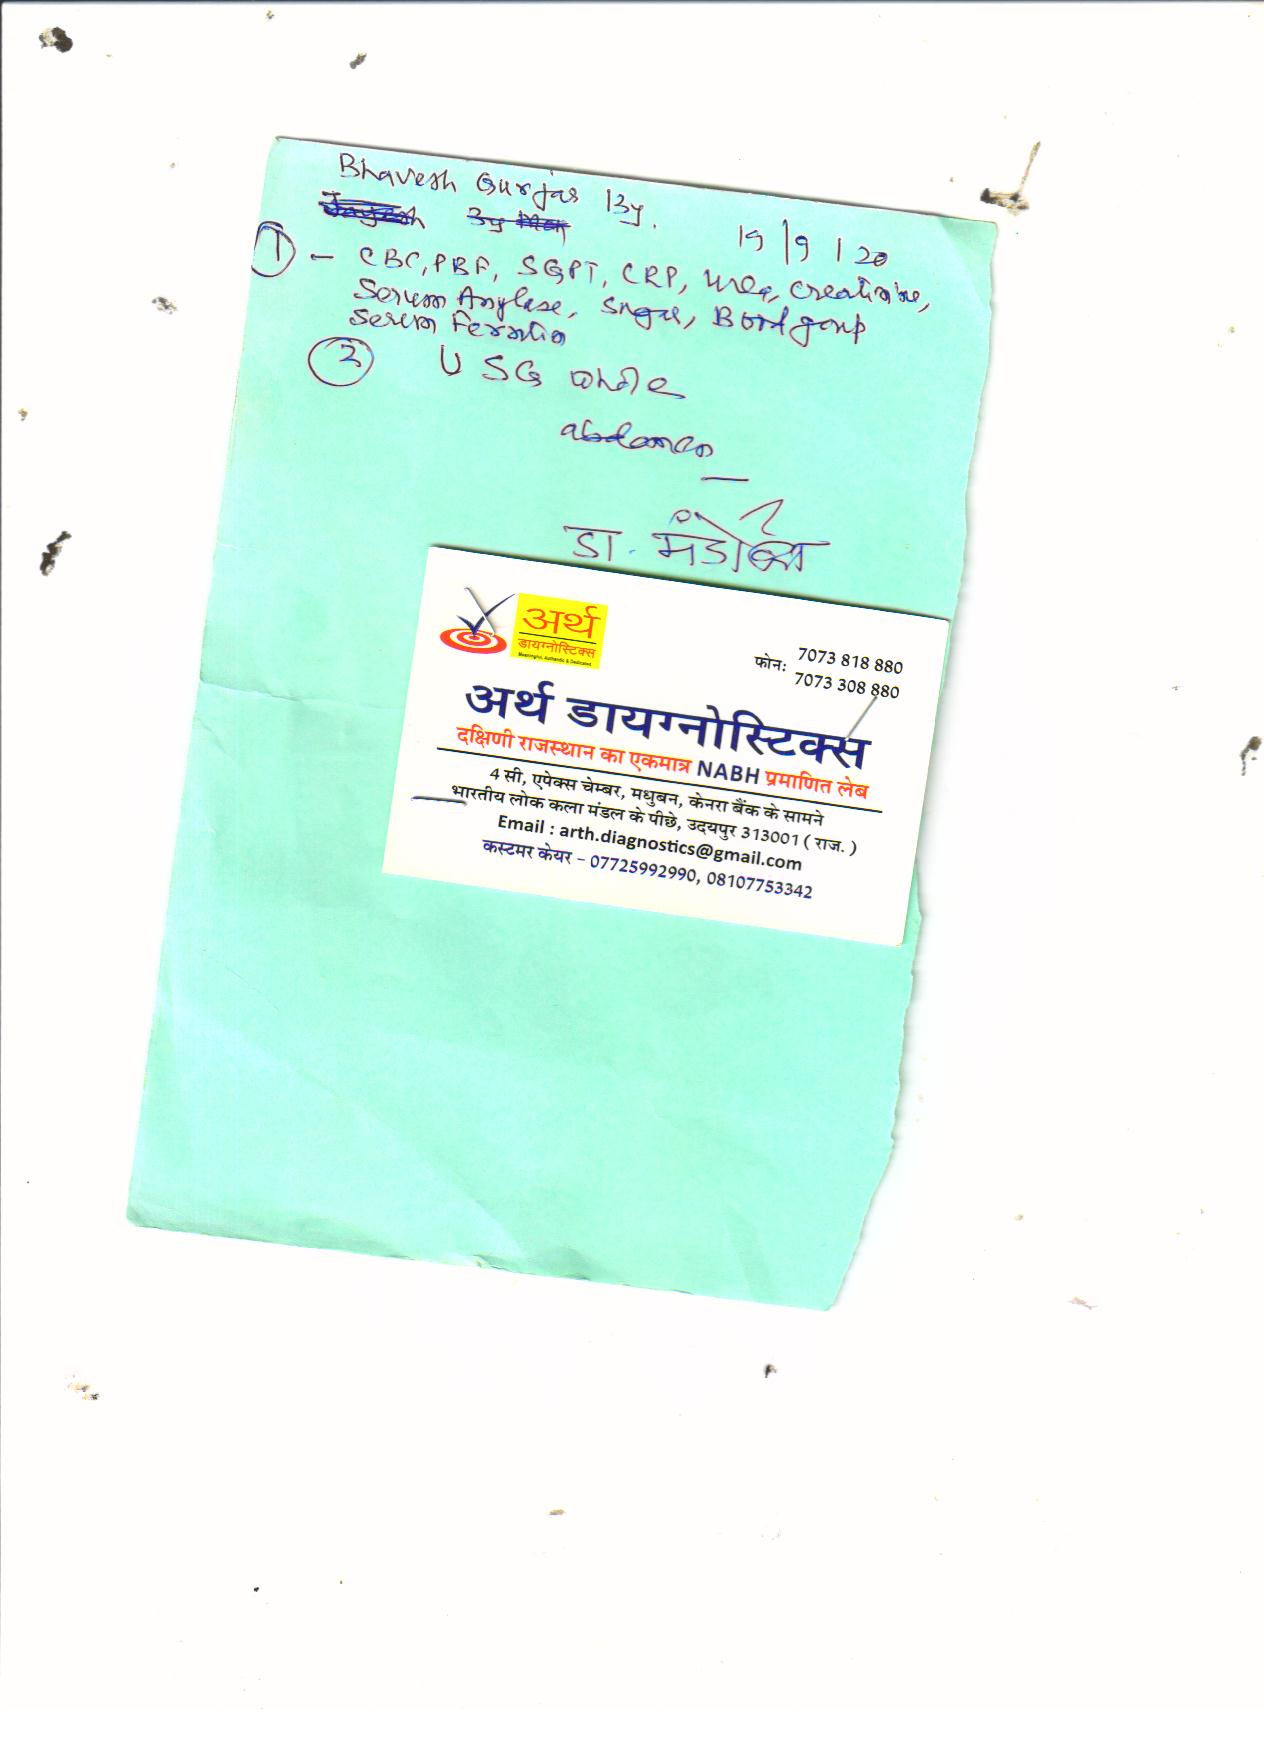 Bhavesh Gurjar 13y.
19/9/20
① - CBC, PBF, SGPT, CRP, Urea, Creatinine,
Serum Amylase, Sugar, Blood group
Serum Ferratin
② USG whole
abdomen
डा.
अर्थ
डायग्नोस्टिक्स
Meaningful, Authentic & Dedicated
फोन: 7073 818 880
7073 308 880
अर्थ डायग्नोस्टिक्स
दक्षिणी राजस्थान का एकमात्र NABH प्रमाणित लेब
4 सी, एपेक्स चेम्बर, मधुबन, केनरा बैंक के सामने
भारतीय लोक कला मंडल के पीछे, उदयपुर 313001 ( राज. )
Email : arth.diagnostics@gmail.com
कस्टमर केयर – 07725992990, 08107753342